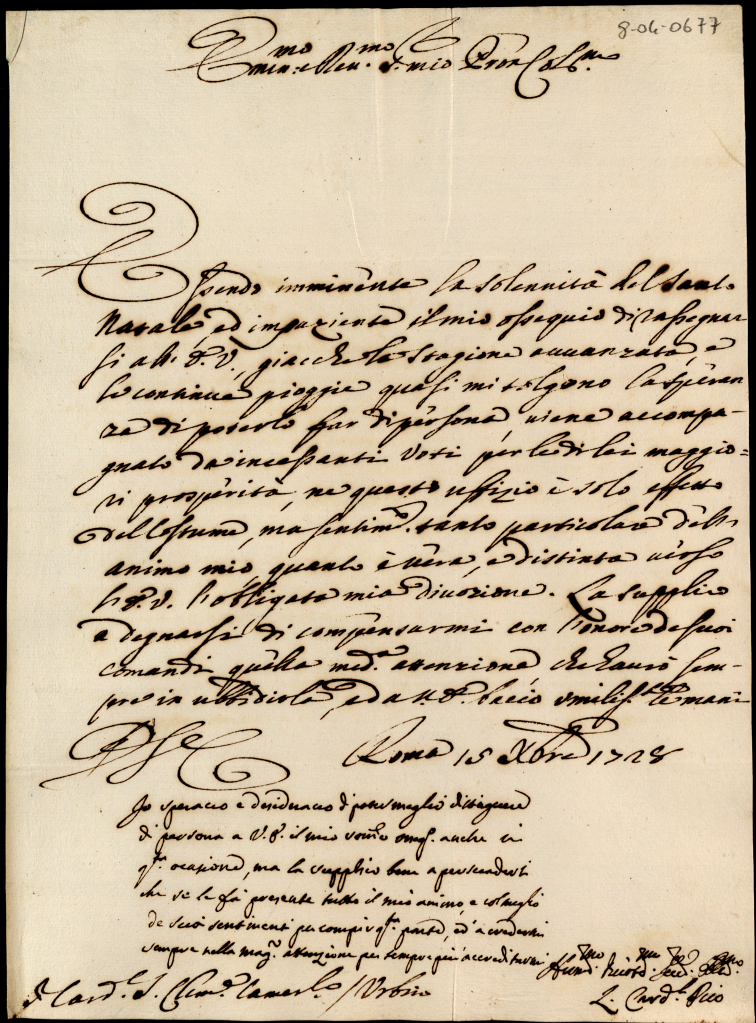 8-04-0677
Emin.mo e Rev.mo S. mio Pron Col.mo
Essendo imminente la solennità del Santo
Natale, ed impaziente il mio ossequio di rassegnar
si all' E.V., giacche la stagione avvanzata, e
le continue pioggie quasi mi tolgono la speran
za di poterlo far di persona, viene accompa-
gnato da incessanti voti per le di lei maggio=
ri prosperità, ne questo uffizio è solo effetto
del Costume, ma sentim.o tanto particolare dell'
animo mio, quanto è vera, e distinta verso
l'E.V. l'obligata mia divozione. La supplico
a degnarsi di compensarmi con l'onore de suoi
comandi quella med.a attenzione, che havrò sem-
pre in ubbidirla, ed a V.E. bacio umilis.te le mani
Roma 15 Xbre 1728
Io speravo e desideravo di poter meglio distinguere
di persona a V.E. il mio anche in
q.ta ocasione, ma la supplico bene a persuadersi
che se le fà presente tutto il mio animo, e col meglio
de suoi sentimenti per compir q.ta parte, ed a credermi
sempre nella mag.r attenzione per sempre più accreditarmi
S.r Card.l S. Clem.e Camerl.o / Urbino
L. Card.l Pico